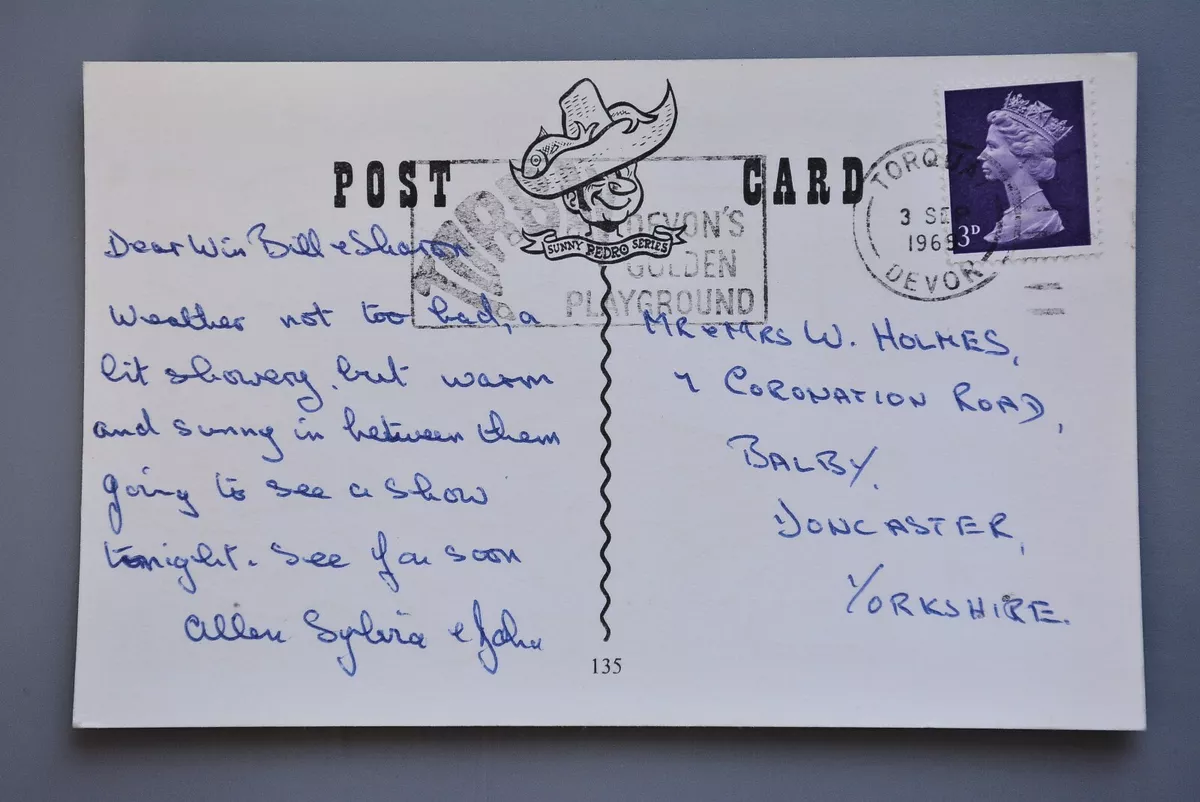 POST CARD
SUNNY PEDRO SERIES
DEVON'S
GOLDEN
PLAYGROUND
TORQUAY
3 SEP
196
DEVON
3D
Dear Win Bill & Sharon
Weather not too bad, a
bit showery, but warm
and sunny in between them
going to see a show
tonight. See you soon
Allen Sylvia & John
MR & MRS W. HOLMES,
CORONATION ROAD,
BALBY.
DONCASTER,
YORKSHIRE.
135